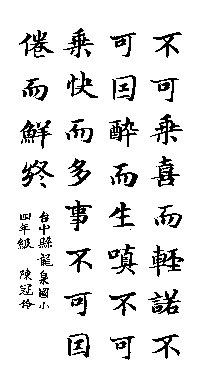 不可乘喜而輕諾不
可因醉而生嗔不可
乘快而多事不可因
倦而鮮終
台中縣龍泉國小
四年級 陳冠伶